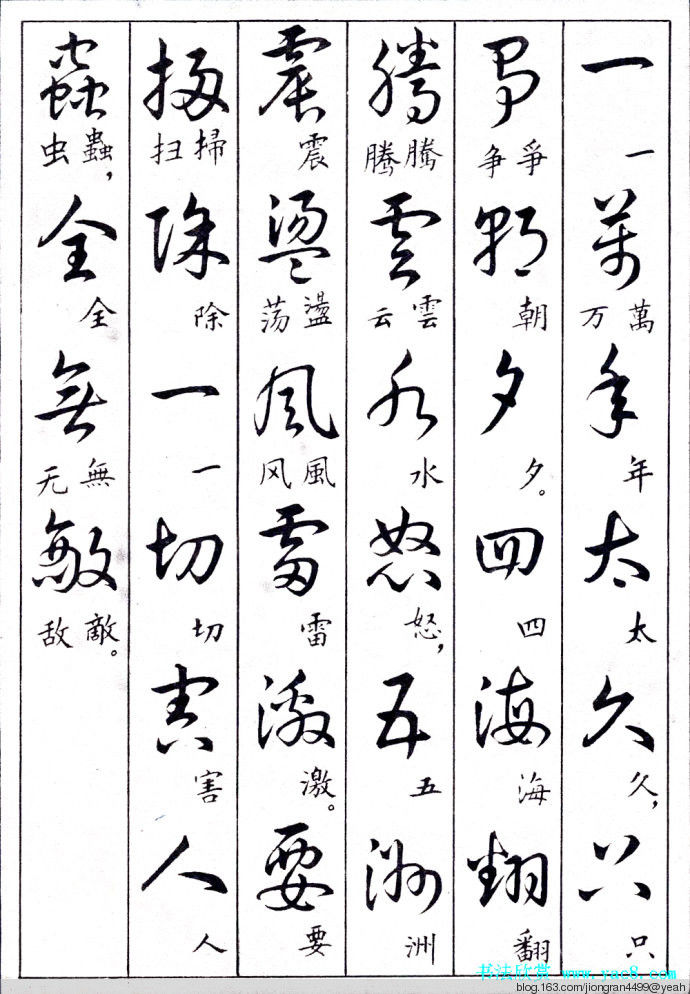 一萬年太久只
一 萬万 年 太 久， 只
爭朝夕四海翻
爭争 朝 夕。 四 海 翻
騰雲水怒五洲
騰腾 雲云 水 怒， 五 洲
震盪風雷激要
震 盪荡 風风 雷 激。 要
掃除一切害人
掃扫 除 一 切 害 人
蟲全無敵
蟲，虫 全 無无 敵。敌
书法欣赏 www.yac8.com
blog.163.com/jiongran4499@yeah